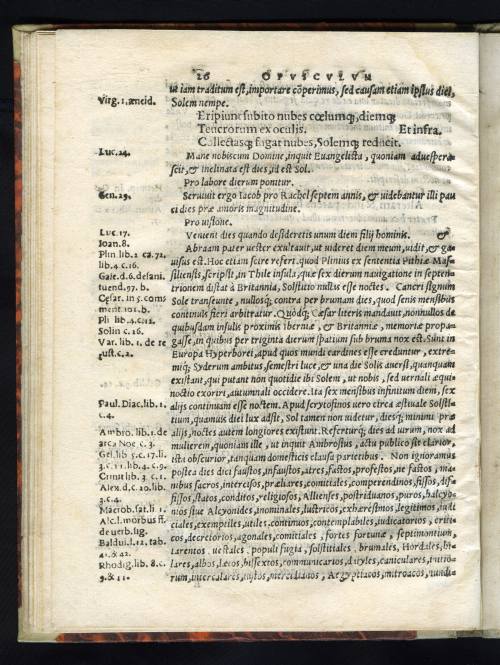 26 OPVSCVLVM
ut iam traditum est, importare cōperimus, sed causam etiam ipsius diei,
Virg. 1. æneid.
Solem nempe.
Eripiunt subito nubes cœlumq́;, diemq́;
Teucrorum ex oculis. Et infra.
Collectasq́; fugat nubes, Solemq́; reducit.
Luc. 24.
Mane nobiscum Domine, inquit Euangelista, quoniam aduespera-
scit, & inclinata est dies, id est Sol.
Pro labore dierum ponitur.
Gen. 29.
Seruiuit ergo Iacob pro Rachel septem annis, & uidebantur illi pau
ci dies præ amoris magnitudine.
Pro uisione.
Luc. 17.
Venient dies quando desideretis unum diem filij hominis. &
Ioan. 8.
Abraam pater uester exultauit, ut uideret diem meum, uidit, & ga-
Plin lib. 2 ca. 72.
uisus est. Hoc etiam scire refert. quod Plinius ex sententia Pithiæ Mas-
lib. 4 c. 16.
siliensis, scripsit, in Thile insula, quæ sex dierum nauigatione in septen-
Gale. d. 6. de sani.
trionem distat à Britannia, Solstitio nullas esse noctes. Cancri signum
tuend. 97. b.
Sole transeunte, nullosq́; contra per brumam dies, quod senis mensibus
Cęsar. in 5. com̄
continuis fieri arbitratur. Quòdq; Cæsar literis mandauit, nonnullos de
ment. 101. b.
quibusdam insulis proximis Iberniæ, & Britanniæ, memoriæ propa-
Pli lib. 4. c. 12.
Solin c. 16.
gasse, in quibus per triginta dierum spatium sub bruma nox est. Sunt in
Var. lib. 1. de re
Europa Hyperborei, apud quos mundi cardines esse creduntur, extre-
rust. c. 2.
miq́; Syderum ambitus, semestri luce, & una die Solis auersi, quanquam
existant, qui putant non quotidie ibi Solem, ut nobis, sed uernali æqui
noctio exoriri, autumnali occidere. Ita sex mensibus infinitum diem, sex
alijs continuam esse noctem. Apud scrytofinos uero circa æstiuale Solsti-
Paul. Diac. lib. 1.
tium, quamuis diei lux adsit, Sol tamen non uidetur, diesq́; minimi præ
c. 4.
alijs, noctes autem longiores existunt. Referturq́; dies ad uirum, nox ad
Ambro. lib. 1. de
arca Noe. c. 3.
mulierem, quoniam ille, ut inquit Ambrosius, actu publico sit clarior,
Gel. lib 5. c. 17. li.
ista obscurior, tanquam domesticis clausa parietibus. Non ignoramus
3. c. 11. lib. 4. c. 9.
postea dies dici faustos, infaustos, atros, fastos, profestos, ne fastos, ma-
Crinit lib. 3. c. 1.
nibus sacros, intercisos, præliares, comitiales, comperendinos, fissos, dif-
Alex. d. c. 20. lib.
3. c. 4.
fissos, statos, conditos, religiosos, Allienses, postriduanos, puros, halcyo-
Macrob. sat. li. 1.
nios siue Alcyonides, inominales, lustricos, exhæresimos, legitimos, iudi
Alc. l. morbus ff.
ciales, exemptiles, utiles, continuos, contemplabiles, iudicatorios, criti-
de uerb. sig.
cos, decretorios, agonales, comitiales, fortes fortunæ, septimontium,
Baldui. l. 12. tab.
41. & 42.
larentos, uestales, populi fugia, solstitiales, brumales, Hordales, hi-
Rhodig. lib. 8. c.
lares, albos, lætos, bissextos, communicarios, diuyles, caniculares, tutio-
9. & 11.
rum, intercalares, iustos, mercidianos, Aegyptiacos, mitroacos, nundi-